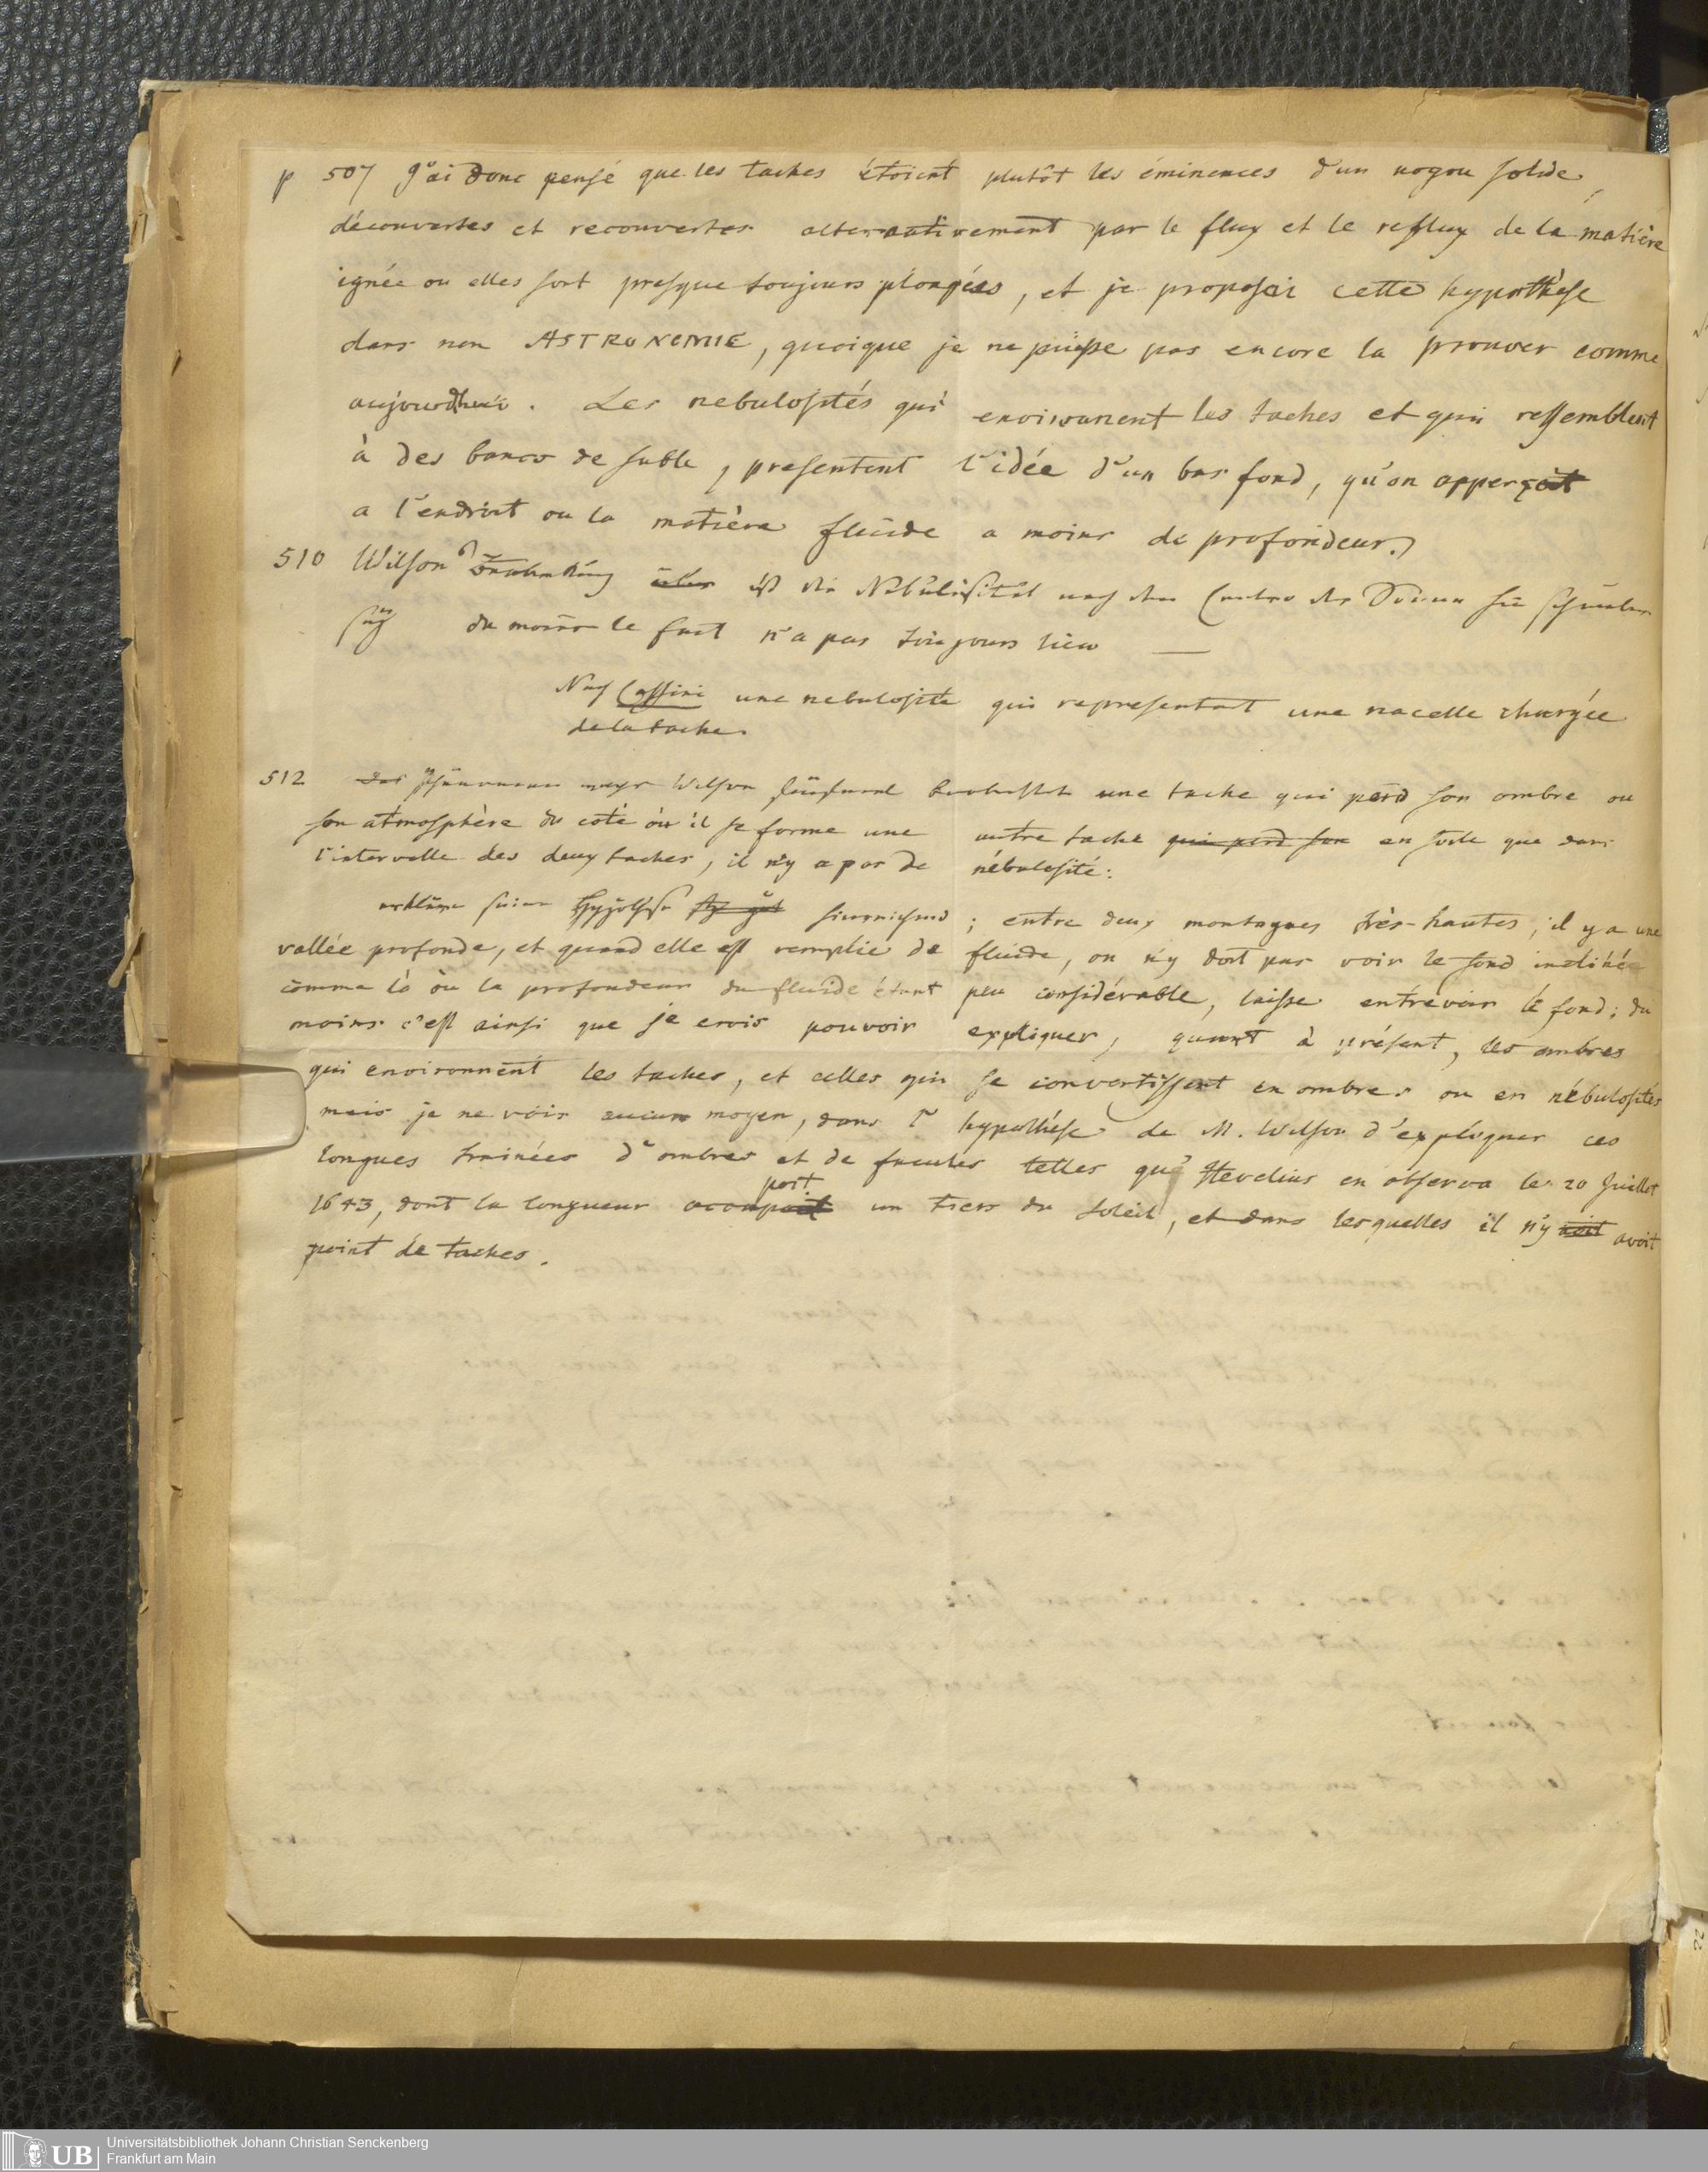 p 507 J'ai donc pensé que les taches étoient plutôt les éminences d'un noyau solide,
découvertes et recouvertes alternativement par le flux et le reflux de la matière
ignée ou elles sont presque toujours plongées, et je proposai cette hypothèse
dans mon ASTRONOMIE, quoique je ne pusse pas encore la prouver comme
aujourdhui. Les nebulosités qui environnent les taches et qui ressemblent
à des bancs de sable, presentent l'idée d'un bas fond, qu'on apperçoit
a l'endroit ou la matière fluide a moins de profondeur.)
510 Wilson's ist die Nebulosität nach dem Centro der Sonne zu schmaler
du moins le fait n'a pas toujours lieu —
Nach Cassini une nebulosite qui representoit une nacelle chargée
de la tache.
512 Das Phänomen Wilson une tache qui perd son ombre ou
son atmosphère du coté où il se forme une autre tache qui perd son en sorte que dans
l'intervalle des deux taches, il n'y a pas de nébulosité:
seiner Hypothese ; entre deux montagnes très-hautes, il y a une
vallée profonde, et quand elle est remplie de fluide, on n'y doit pas voir le fond incliné
comme là où la profondeur du fluide étant peu considérable, laisse entrevoir le fond; du
moins c'est ainsi que je crois pouvoir expliquer, quant à présent, les ombres
qui environnent les taches, et celles qui se convertissent en ombres ou en nébulosités
mais je ne vois aucun moyen, dans l'hypothése de M. Wilson d'expliquer ces
longues trainées d'ombres et de facules telles qu' Hevelius en observa le 20 Juillet
1643, dont la longueur occupoit un tiers du soleil, et dans lesquelles il n'y avoit
point de taches.
22
UB Universitätsbibliothek Johann Christian Senckenberg
Frankfurt am Main